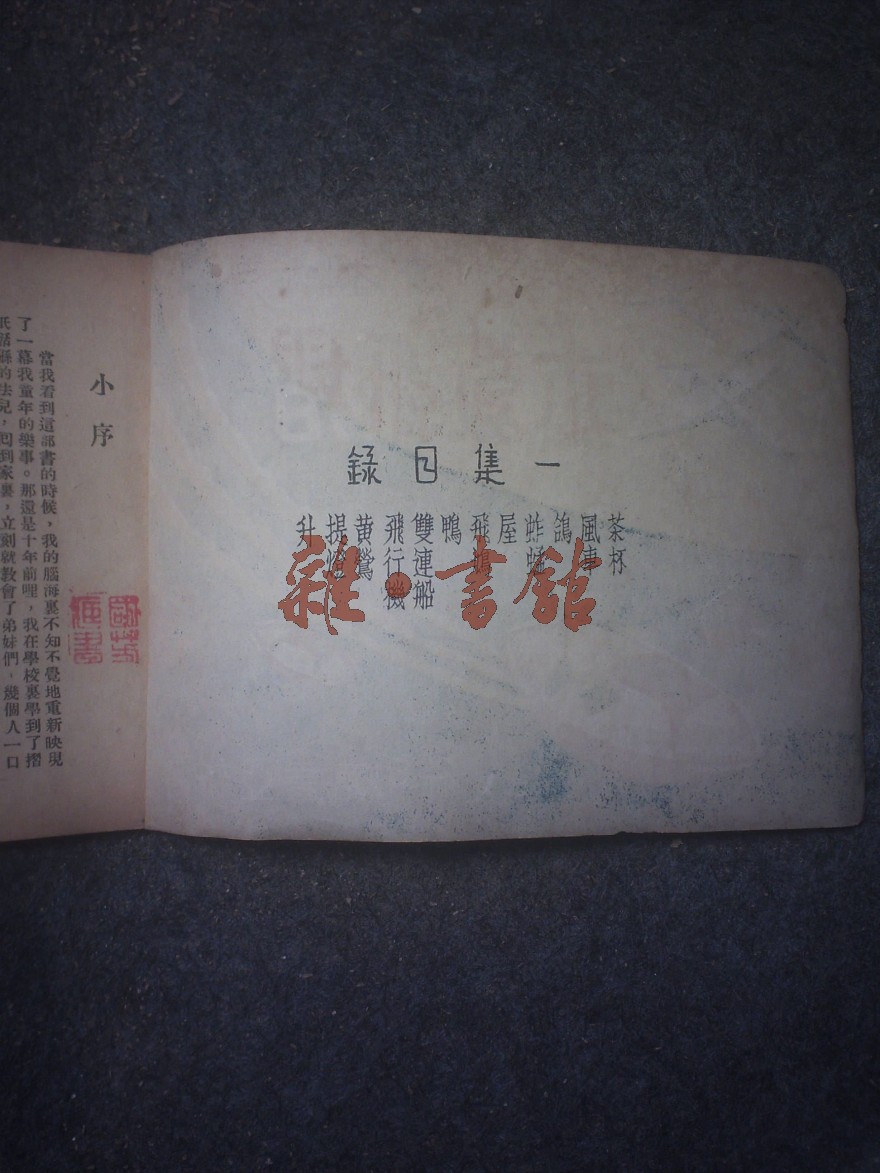 一集目錄
茶杯
風車
鴿
蚱蜢
屋
飛鴉
鴨
雙連船
飛行機
黃鶯
提燈
升
小序
當我看到這部書的時候，我的腦海裏不知不覺地重新映現
了一幕我童年的樂事。那還是十年前哩，我在學校裏學到了摺
的法兒，回到家裏，立刻就教會了弟妹們，幾個人一口
雜·書館